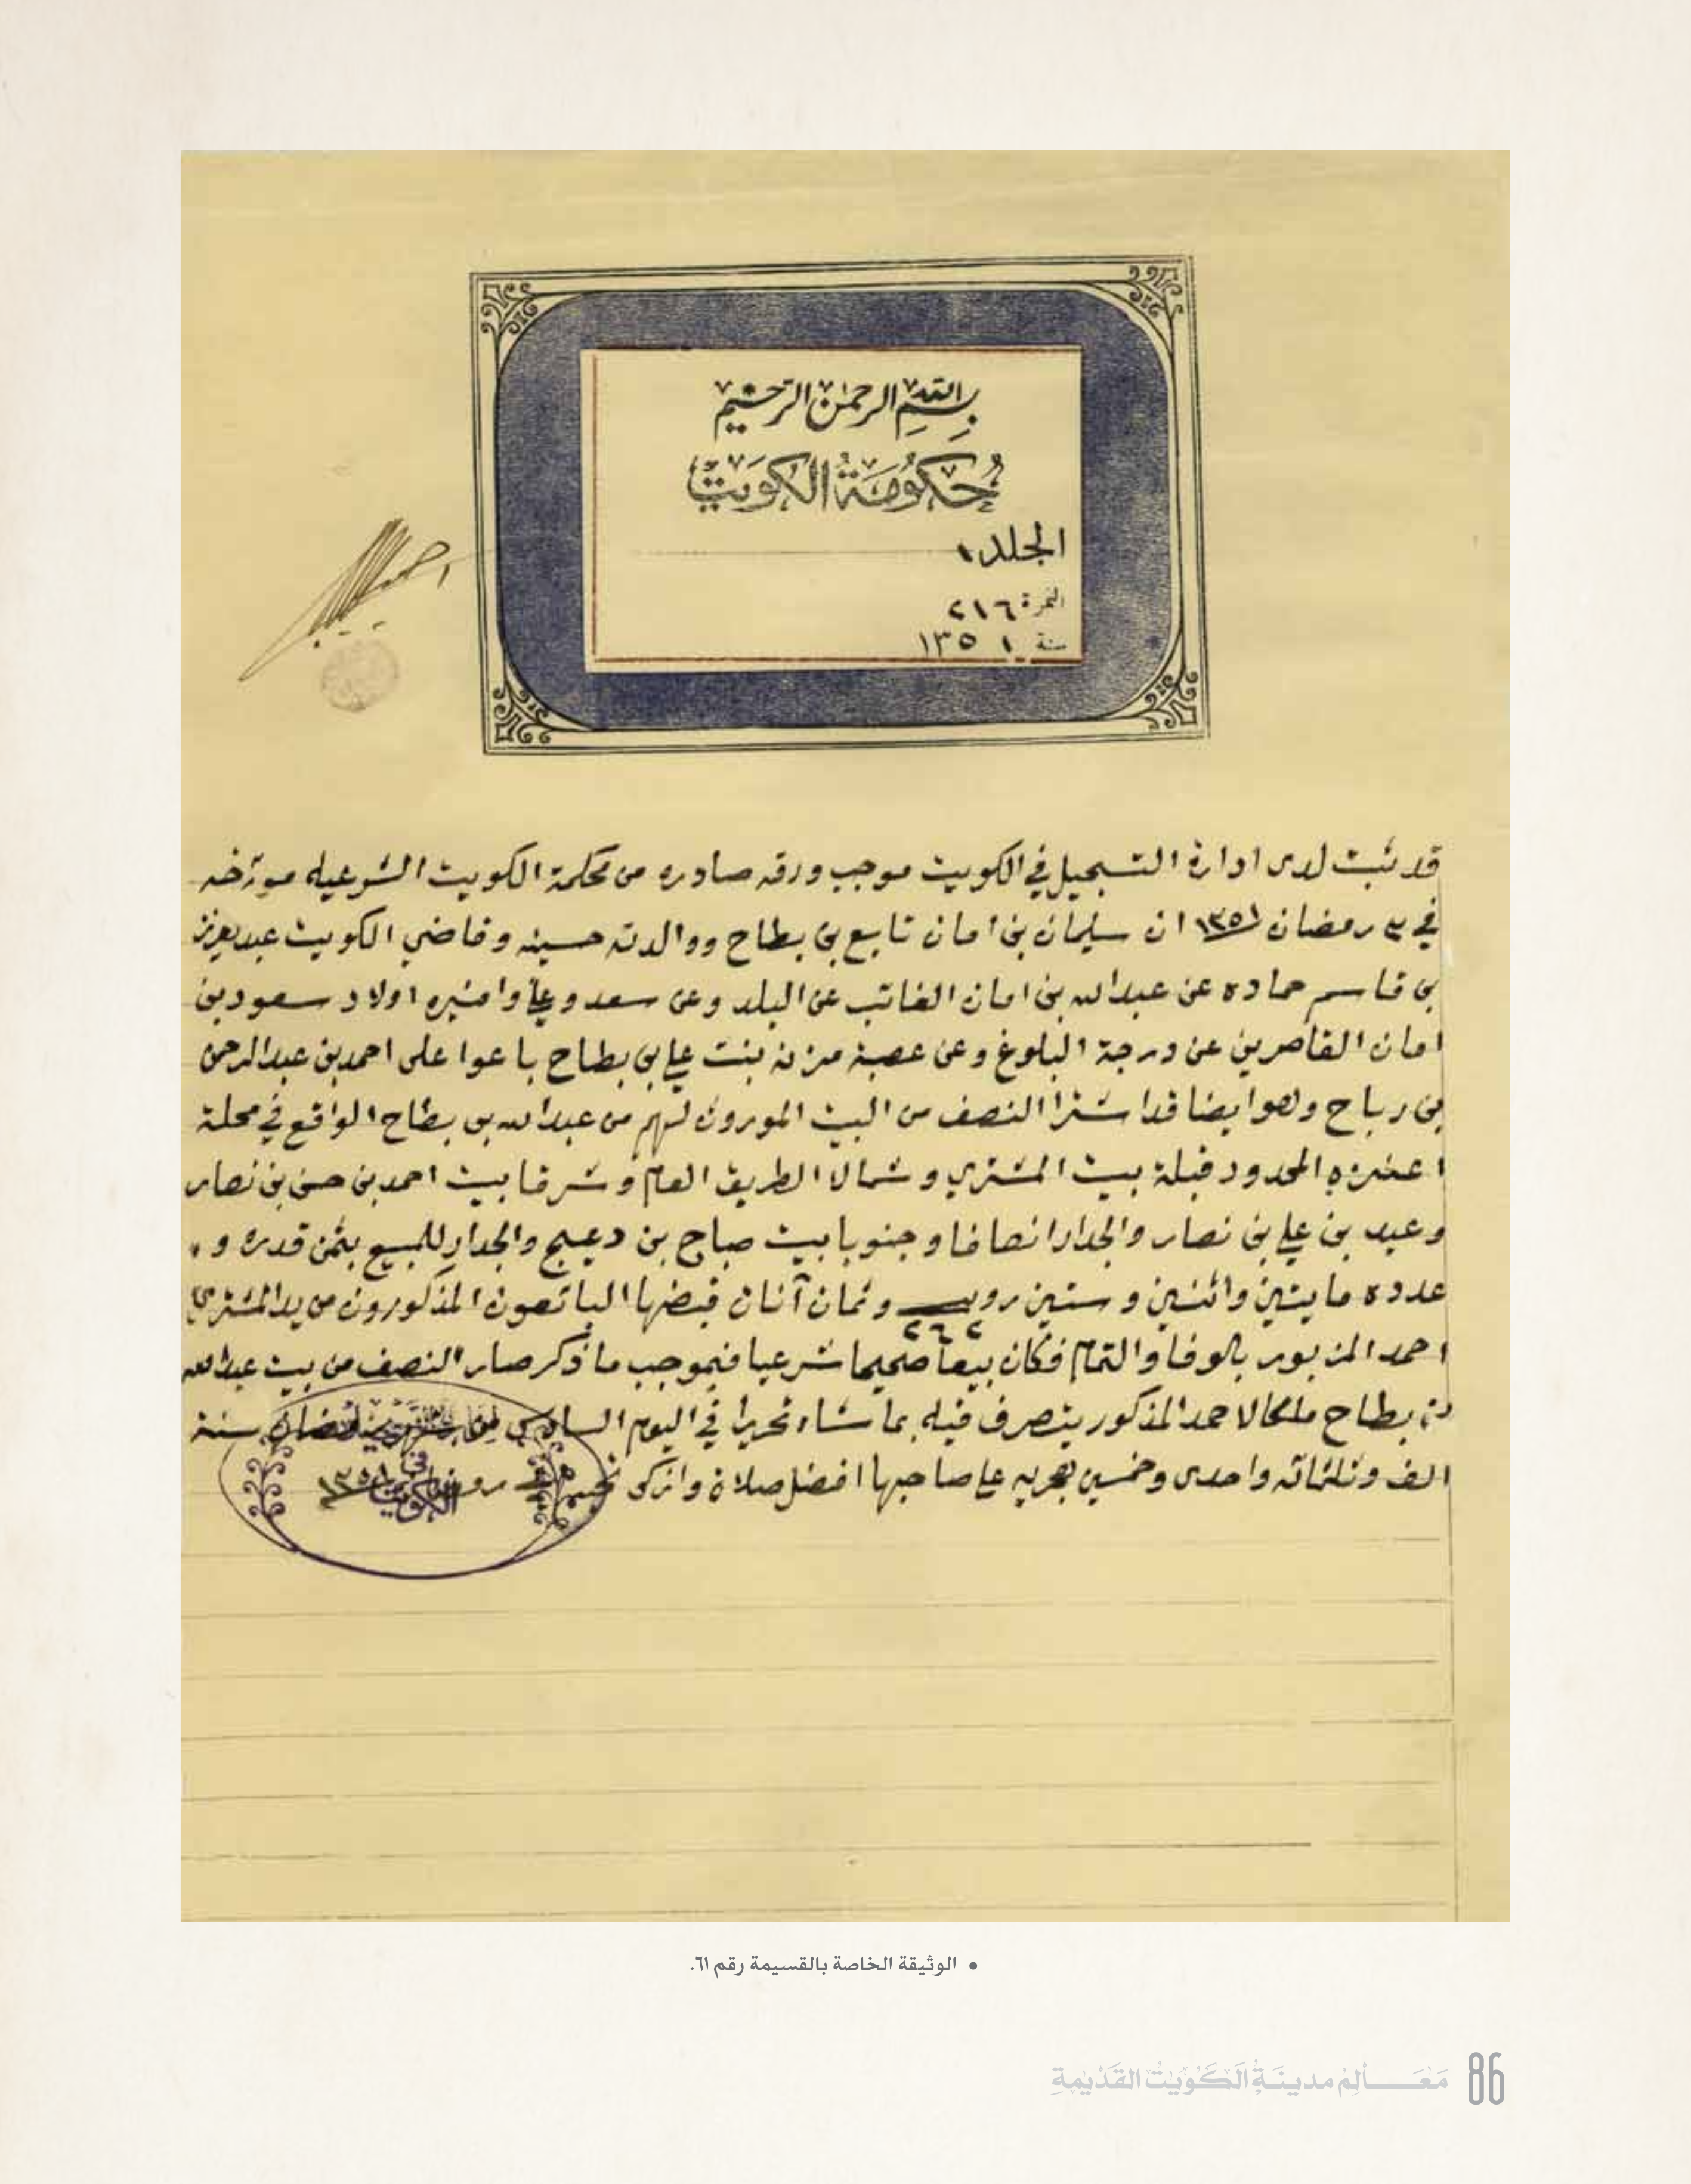 بسم الله الرحمن الرحيم
حكومة الكويت
الجلد ١
النمرة: ٢١٦
سنة ١٣٥١
قد ثبت لدى ادارة التسجيل في الكويت موجب ورقه صادره من محكمة الكويت الشرعيه مورخه
في ٣ رمضان ١٣٥١ ان سليمان بن امان تابع بن بطاح ووالدته حسينه وقاضي الكويت عبدالعزيز
بن قاسم حماده عن عبدالله بن امان الغائب عن البلد وعن سعد وعلي وامنيره اولاد سعود بن
امان القاصرين عن درجة البلوغ وعن عصبة مزنه بنت علي بن بطاح باعوا على احمد بن عبدالرحمن
بن رباح وهو ايضا قد اشترا النصف من البيت الموروث لهم من عبدالله بن بطاح الواقع في محلة
اعنزه المحدود قبلة بيت المشتري وشمالا الطريق العام وشرقا بيت احمد بن حسن بن نصار
وعيد بن علي بن نصار والجدار انصافا وجنوبا بيت صباح بن دعيج والجدار للمبيع بثمن قدره و
عدده مايتين واثنين وستين روبيه وثمان آنات قبضها البائعون المذكورون من يد المشتري
٢٦٢
احمد المزبور بالوفا والتمام فكان بيعا صحيحا شرعيا فبموجب ما ذكر صار النصف من بيت عبدالله
بن بطاح ملكا لاحمد المذكور يتصرف فيه بما شاء تحريرا في اليوم السادس من رمضان سنة
الف وثلثمائه واحدى وخمسين هجريه على صاحبها افضل صلاة وازكى تحيه ١٣٥١
في الكويت
• الوثيقة الخاصة بالقسيمة رقم ٦١.
86 معالم مدينة الكويت القديمة